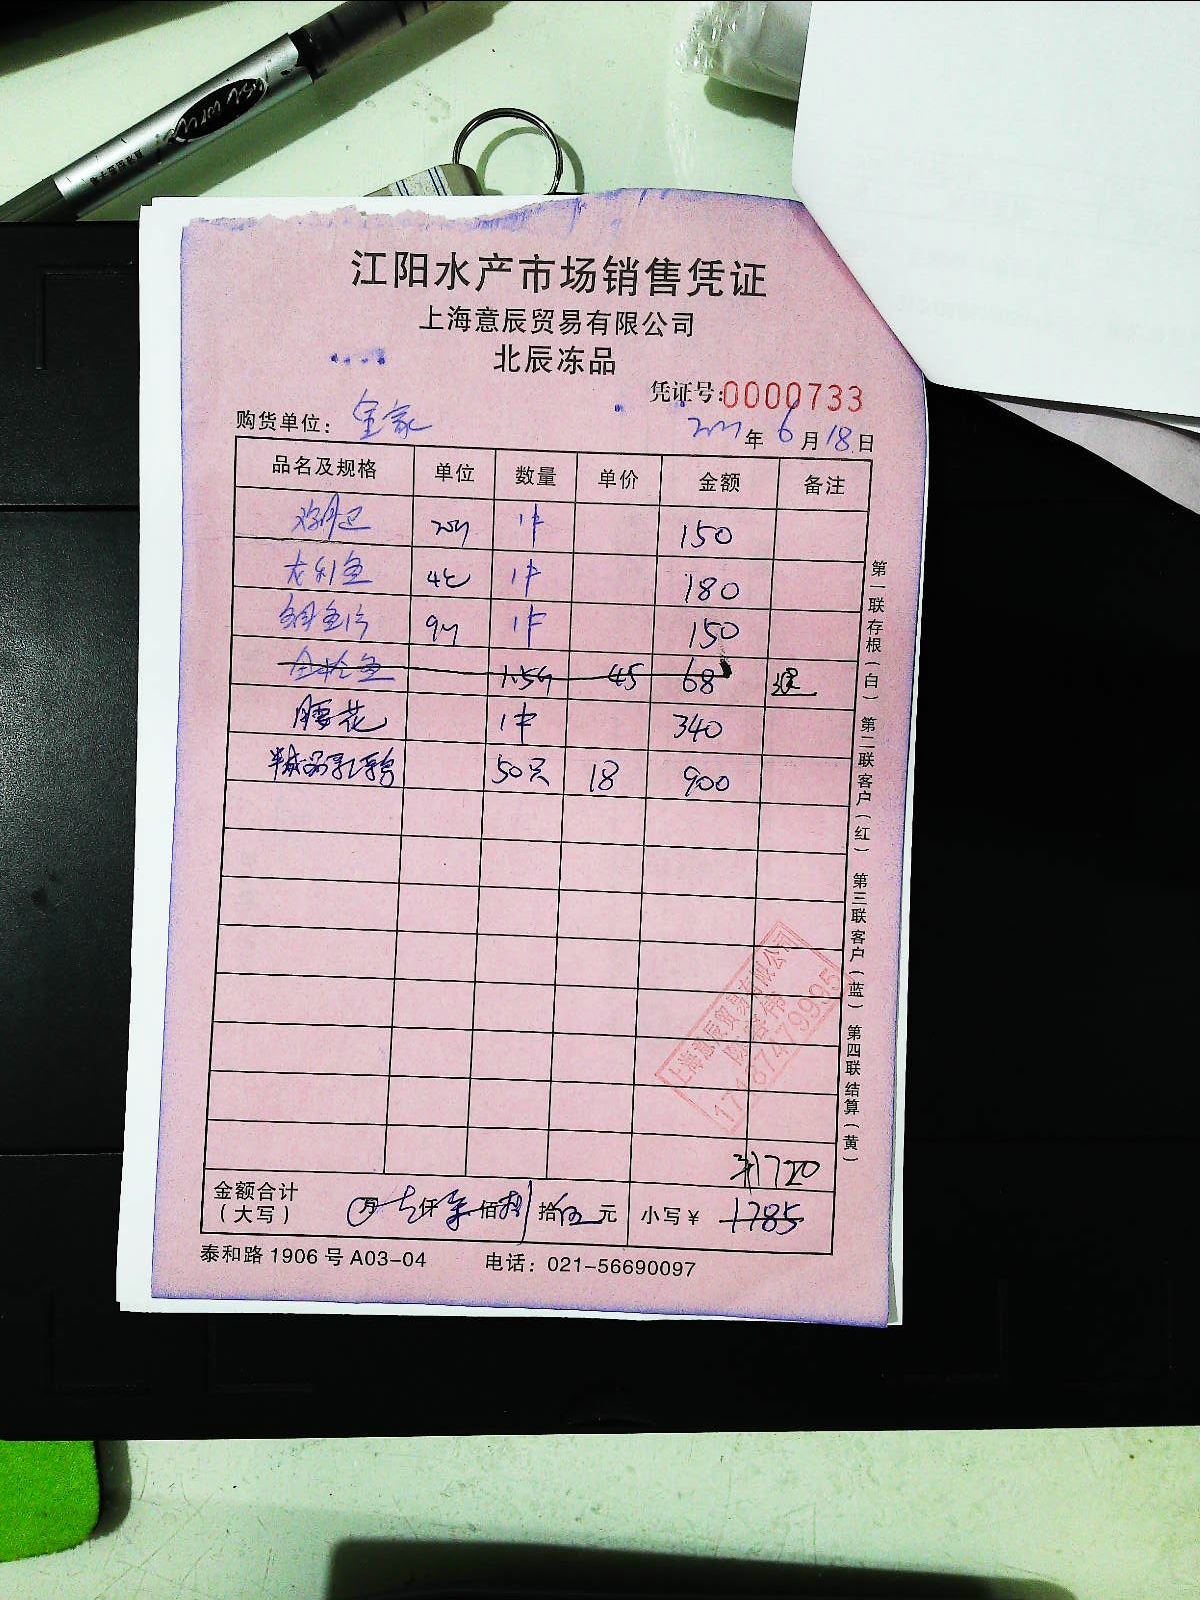 江阳水产市场销售凭证
上海意辰贸易有限公司
北辰冻品
凭证号:0000733
购货单位: 全家
年 6 月 18 日
品名及规格 单位 数量 单价 金额 备注
1件 150
龙利鱼 1件 180
鲷鱼片 1件 150
45 68 退
腰花 1件 340
半成品乳鸽 50只 18 900
¥1720
金额合计
(大写) 万 七仟柒佰捌拾伍元 小写¥ 1785
泰和路1906号A03-04 电话: 021-56690097
第一联存根(白) 第二联客户(红) 第三联客户(蓝) 第四联结算(黄)
上海意辰贸易有限公司